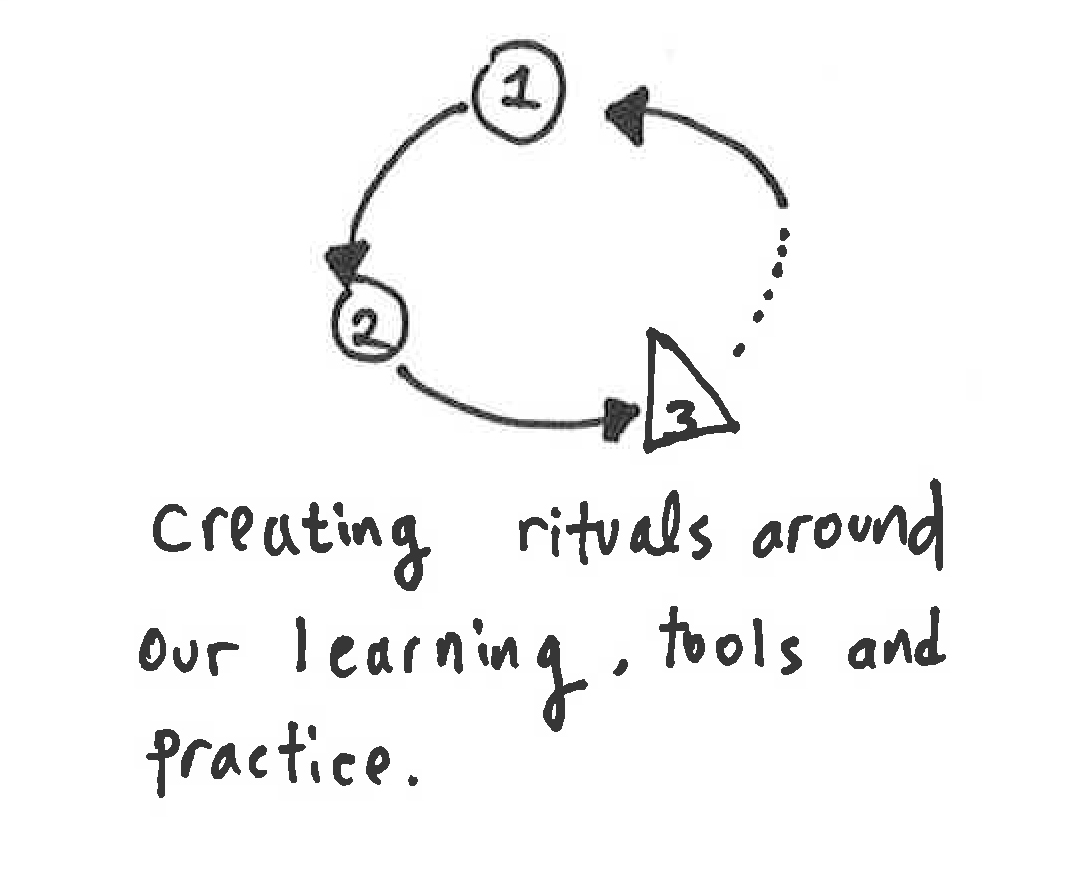 1
2
3
creating rituals around
our learning, tools and
practice.